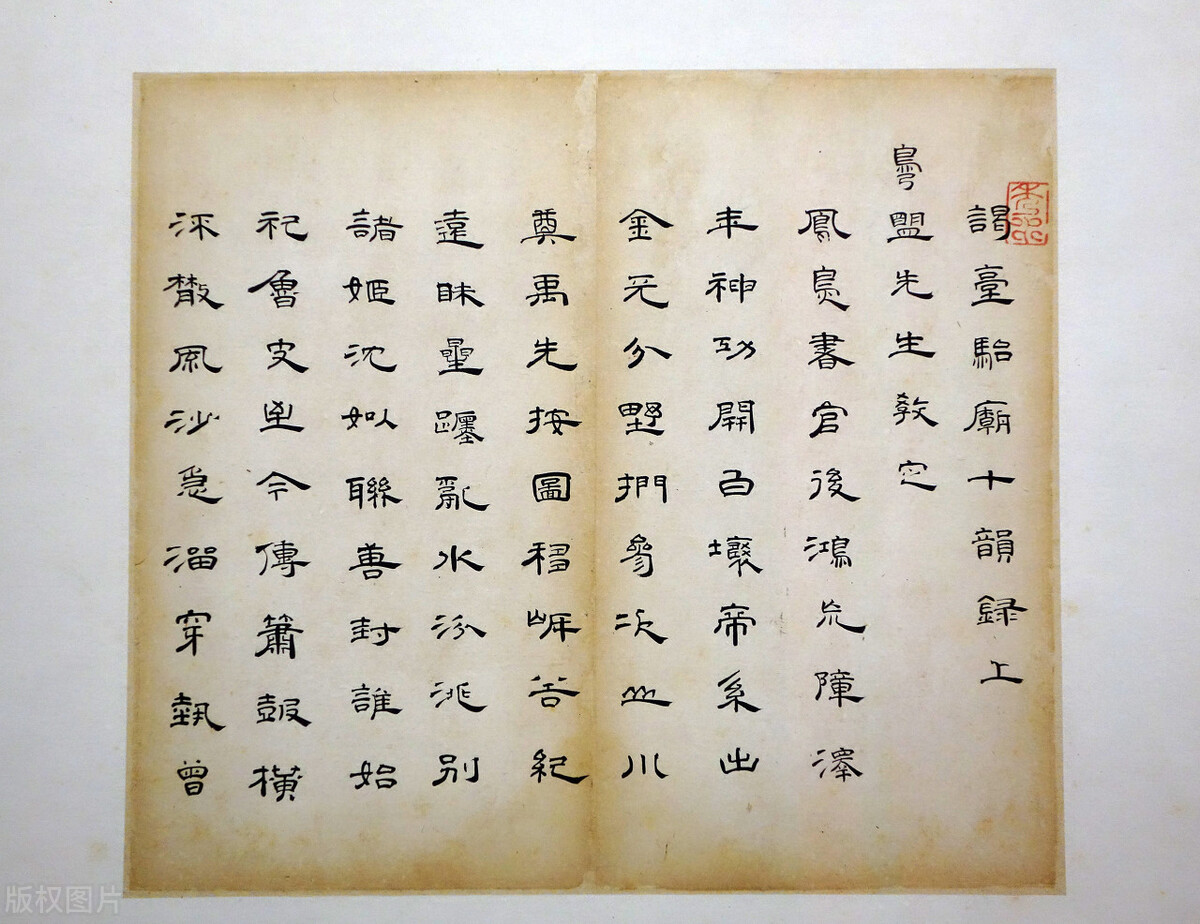 謁臺駘廟十韻録上
鳧盟先生教定
鳳鳥書官後鴻荒障澤
年神功開白壤帝系出
金天分野捫參次山川
奠禹先按圖移谷紀
遠昧星躔亂水汾洮別
諸姬沈姒聯善封誰始
祀魯史至今傳簫鼓橫
汾散風沙急溜穿執曾
版权图片